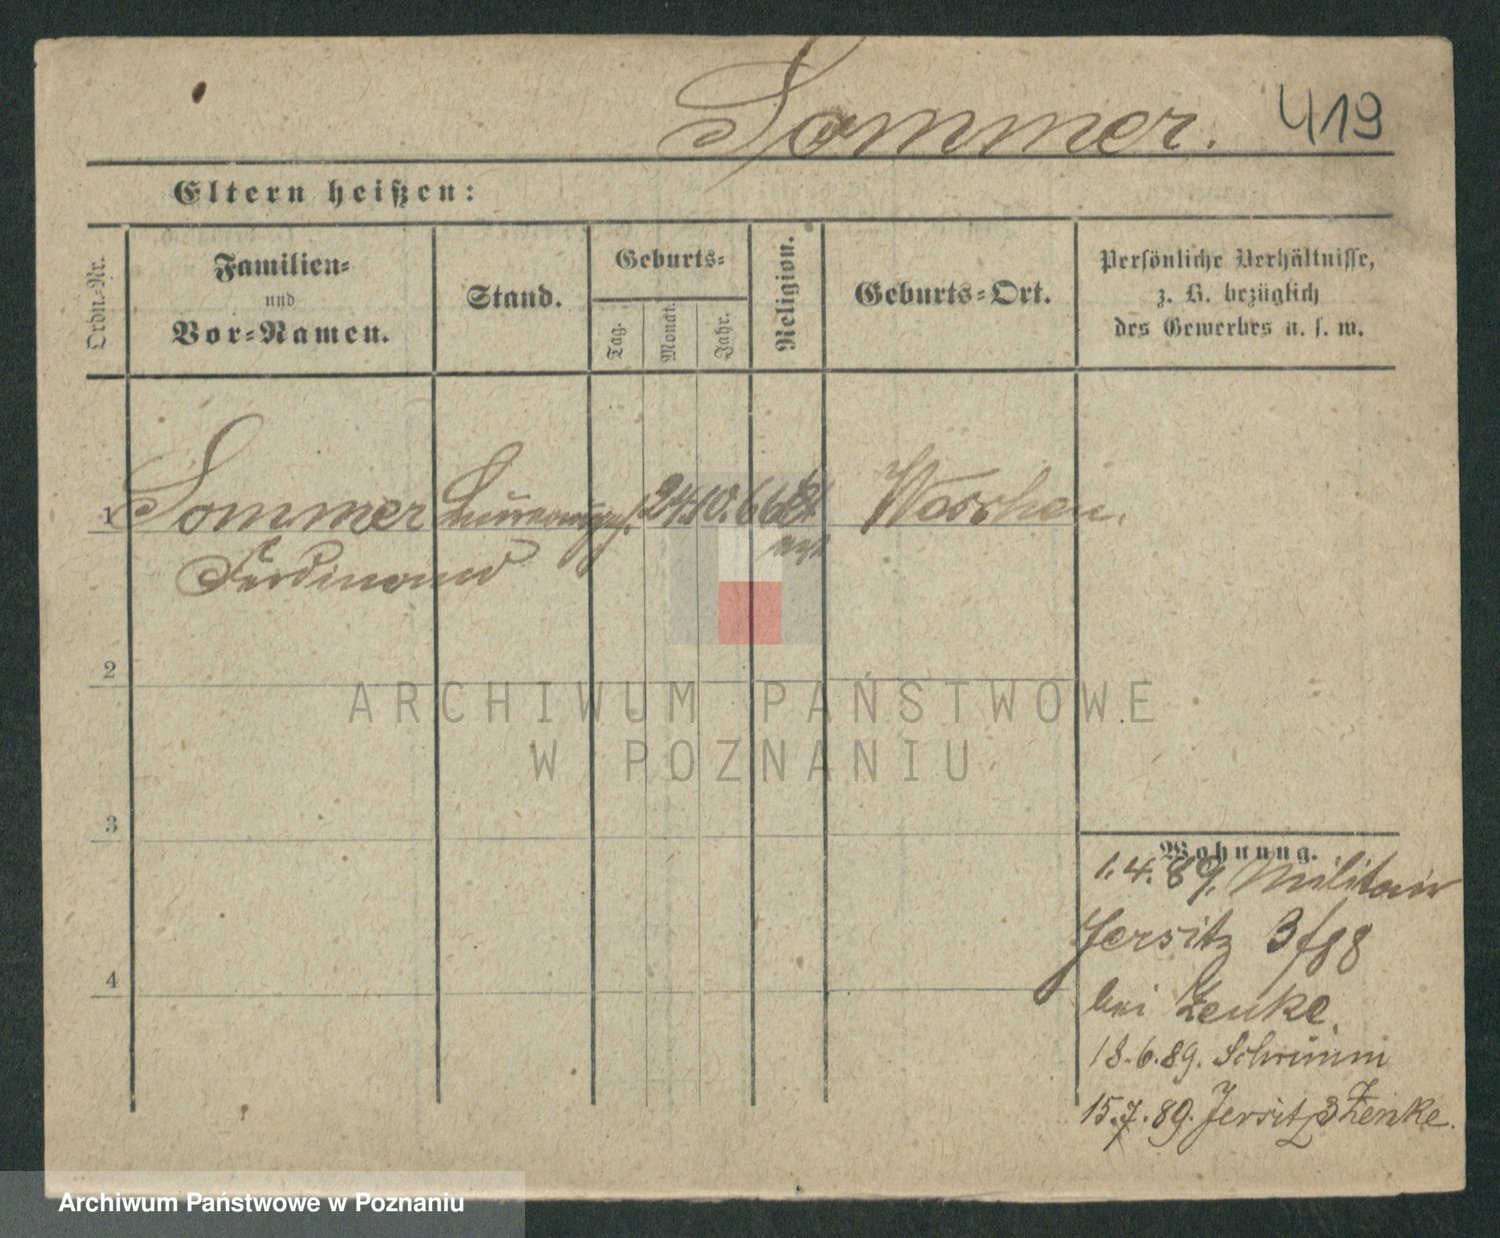 Sommer. 419
Eltern heißen:
Ordn.-Nr.
Familien-
und
Vor-Namen.
Stand.
Geburts-
Tag.
Monat.
Jahr.
Religion.
Geburts-Ort.
Persönliche Verhältnisse,
z. B. bezüglich
des Gewerbes u. s. w.
1 Sommer 24. 10. 66
Ferdinand
2
3
4
Wohnung.
1.4.89. Militair
Jersitz 3
bei Zenke.
18.6.89. Schrimm
15.7.89. Jersitz 3 Zenke.
ARCHIWUM PAŃSTWOWE
W POZNANIU
Archiwum Państwowe w Poznaniu